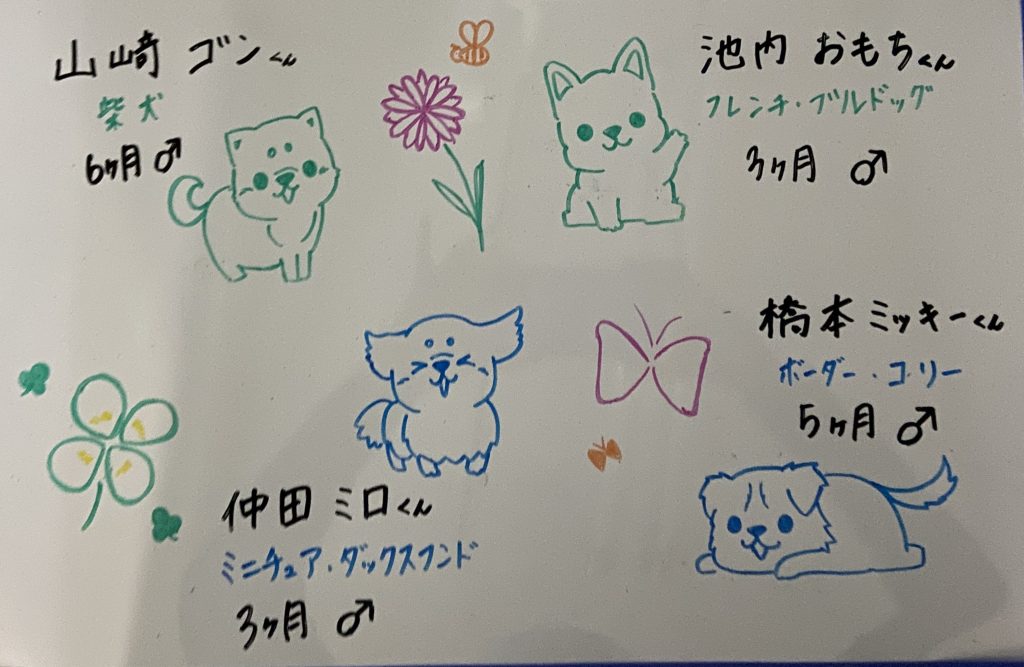 山﨑 ゴンくん
柴犬
6ヶ月 ♂
池内 おもちくん
フレンチ・ブルドッグ
3ヶ月 ♂
橋本 ミッキーくん
ボーダー・コリー
5ヶ月 ♂
仲田 ミロくん
ミニチュア・ダックスフンド
3ヶ月 ♂